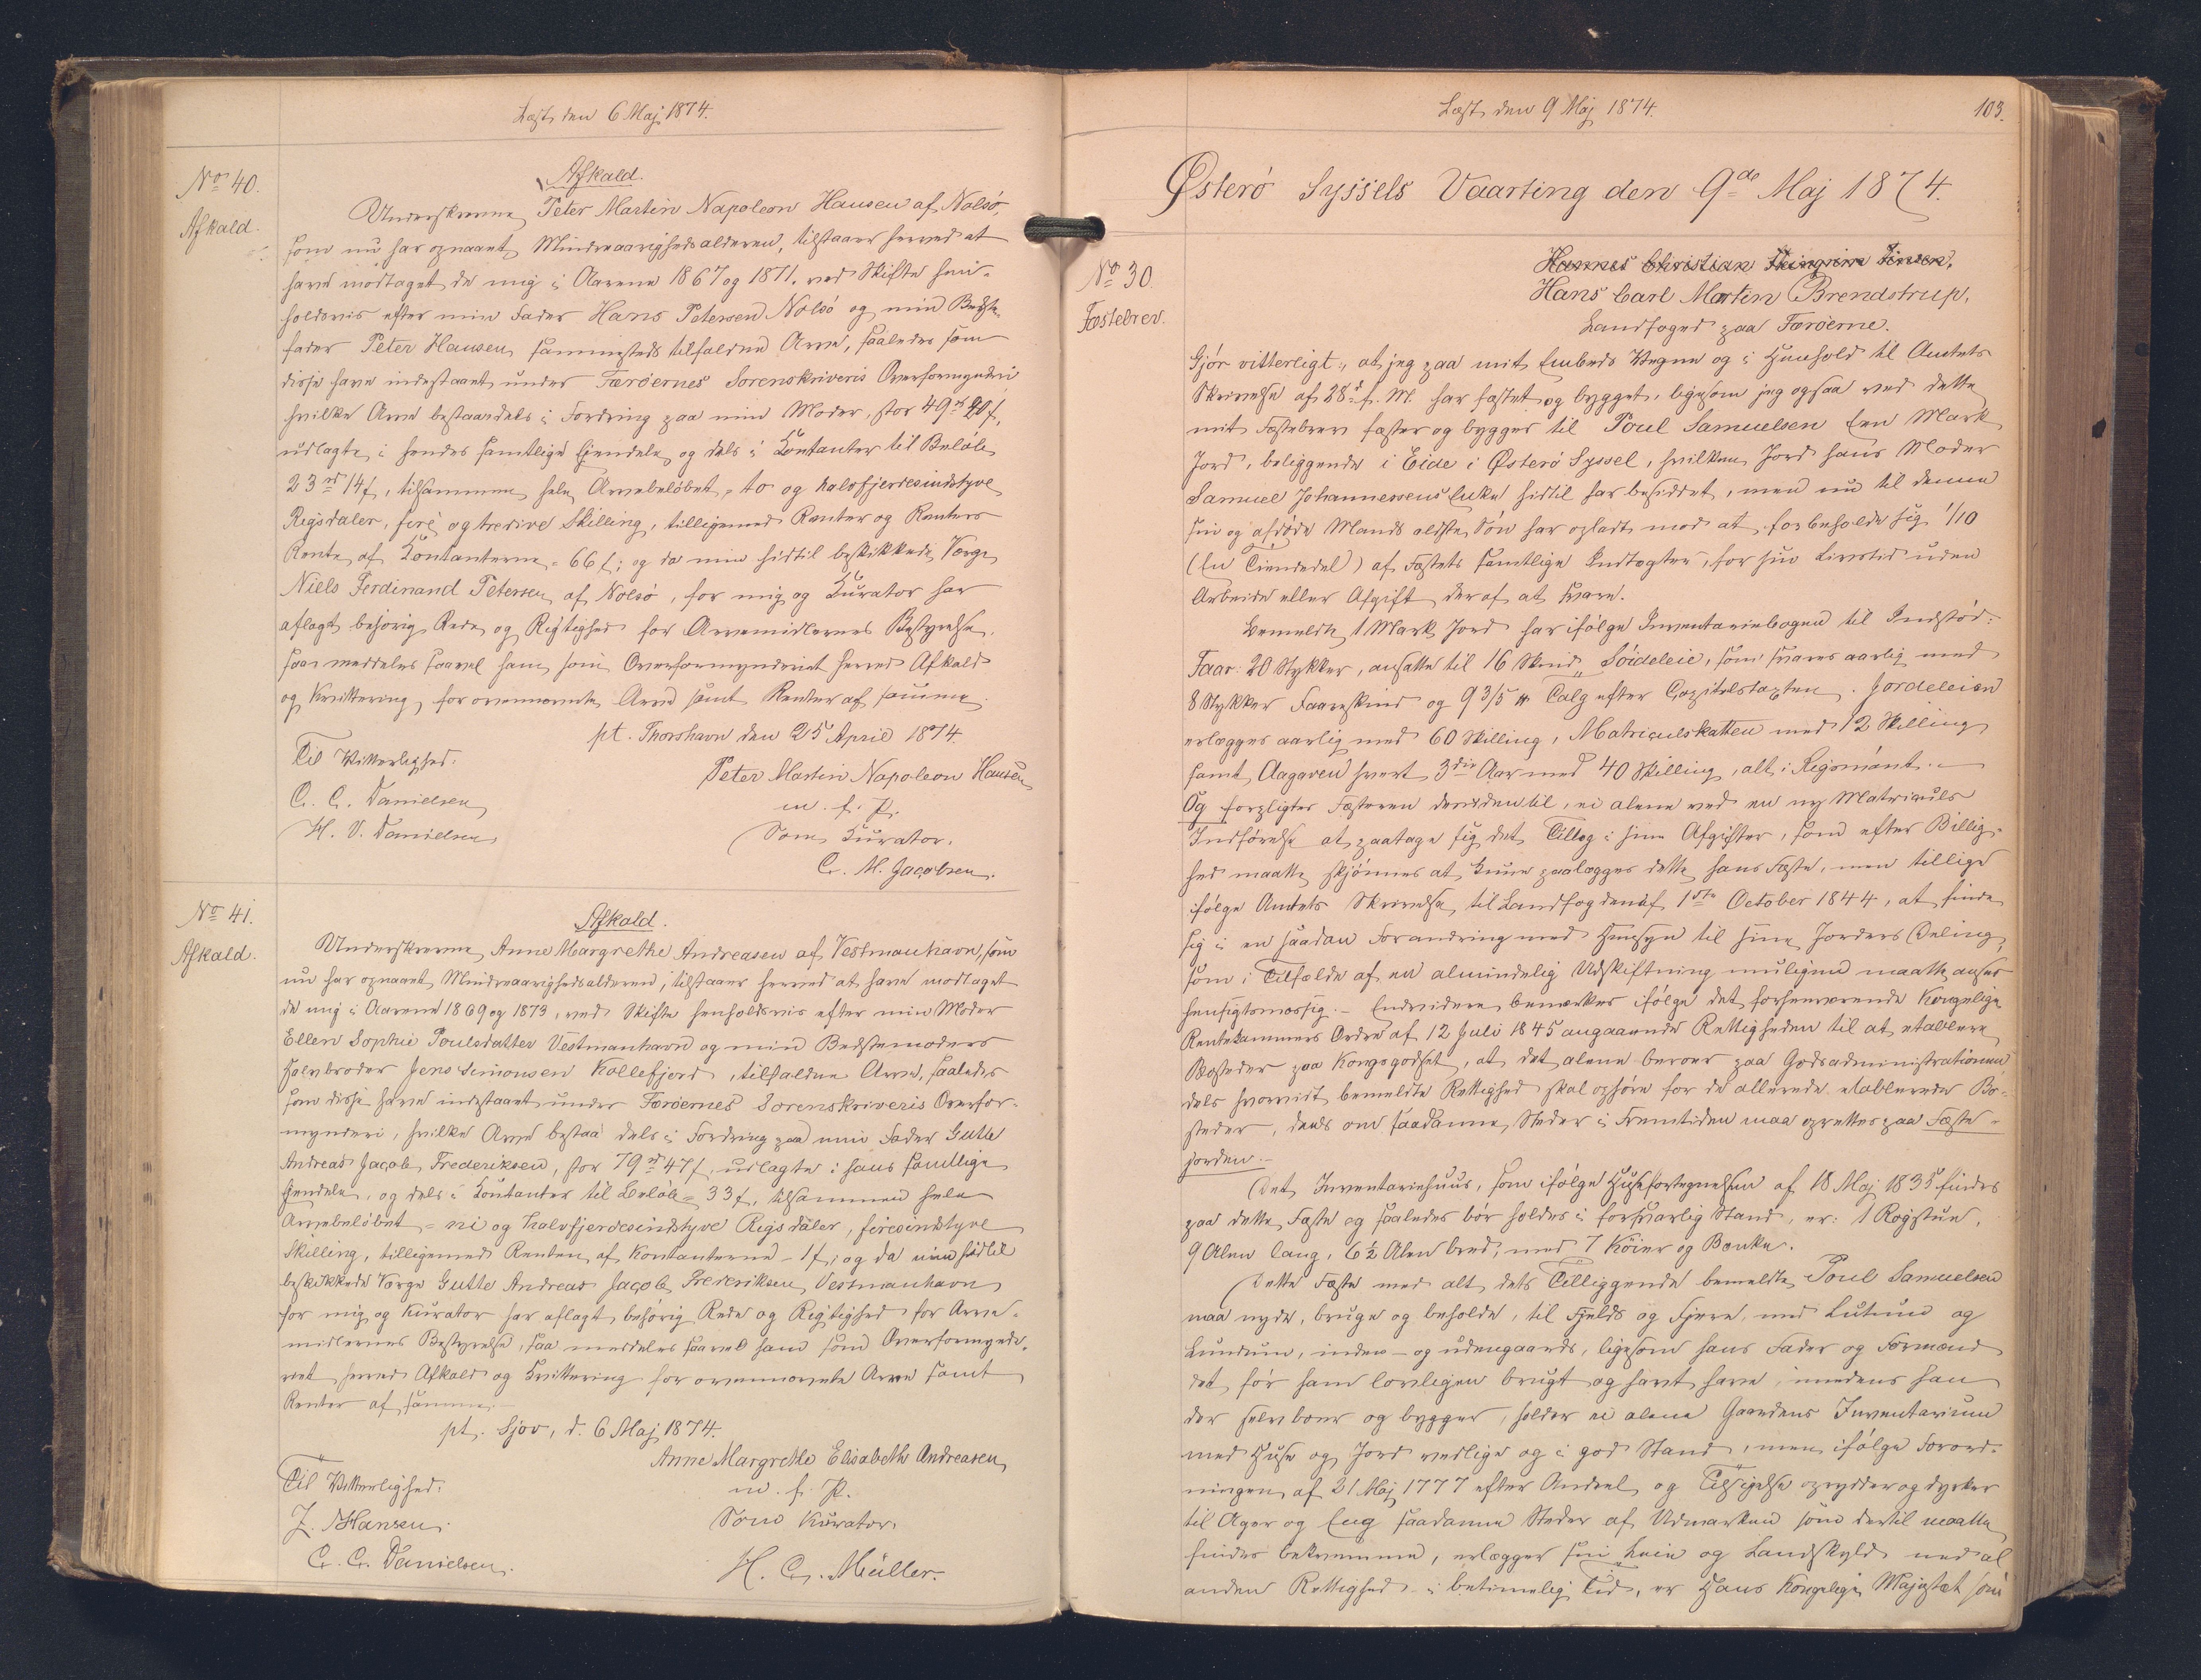 Læst den 6 Maj 1874.
No 40.
Afkald.
Afkald.
Underskrevne Peter Martin Napoleon Hansen af Nolsö,
som nu har opnaaet Mindreaarighedsalderen, tilstaaer herved at
have modtaget de mig i Aarene 1867 og 1871, ved Skifte hen-
holdsvis efter min Fader Hans Petersen Nolsö og min Bedste-
fader Peter Hansen sammesteds tilfaldne Arve, saaledes som
disse have indestaaet under Færöernes Sorenskriveris Overformynderi
hvilke Arve bestaar dels i Fordring paa min Moder, stor 49 rd
udlagte i hendes samtlige Ejendele og dels i Contanter til Beløb
23 rd 14 f, tilsammen hele Arvebeløbet = to og halvfjerdesindstyve
Rigsdaler, fire og tredive Skilling, tilligemed Renter og Renters
Rente af Contanterne = 66 f; og da min hidtil beskikkede Værge
Niels Ferdinand Petersen af Nolsö, for mig og Kurator har
aflagt behörig Rede og Rigtighed for Arvemidlernes Bestyrelse,
saa meddeles saavel ham som Overformynderiet herved Afkald
og Kvittering for ovennævnte Arve samt Renter af samme.
pt. Thorshavn den 25 April 1874.
Til Vitterlighed:
Peter Martin Napoleon Hansen
C. C. Danielsen
m. f. P.
H. V. Danielsen
Som Kurator.
C. M. Jacobsen.
No 41.
Afkald.
Afkald.
Underskrevne Anne Margrethe Andreasen af Vestmanhavn, som
nu har opnaaet Mindreaarighedsalderen, tilstaaer herved at have modtaget
de mig i Aarene 1869 og 1873, ved Skifte henholdsvis efter min Moder
Ellen Sophie Poulsdatter Vestmanhavn og min Bedstemoders
Halvbroder Jens Simonsen Kollefjord, tilfaldne Arve, saaledes
som disse have indestaaet under Færöernes Sorenskriveris Overfor-
mynderi, hvilke Arve bestaa dels i Fordring paa min Fader Gutte
Andreas Jacob Frederiksen, stor 79 rd 47 f, udlagte i hans samtlige
Ejendele, og dels i Contanter til Beløb = 33 f, tilsammen hele
Arvebeløbet = ni og halvfjerdesindstyve Rigsdaler, firesindstyve
Skilling, tilligemed Renten af Kontanterne - 1 f; og da min hidtil
beskikkede Værge Gutte Andreas Jacob Frederiksen Vestmanhavn
for mig og Kurator har aflagt behörig Rede og Rigtighed for Arve-
midlernes Bestyrelse, saa meddeles saavel ham som Overformynde-
riet herved Afkald og Kvittering for ovennævnte Arve samt
Renter af samme.
pt. Sjov, d. 6 Maj 1874.
Anne Margrethe Elisabeth Andreasen
Til Vitterlighed:
m. f. P.
J. Hansen.
Som Kurator.
C. C. Danielsen.
H. C. Müller.
Læst den 9 Maj 1874.
103.
Østerö Syssels Vaarting den 9de Maj 1874.
No 30.
Fæstebrev.
Hannes Christian Finsen,
Hans Carl Martin Brendstrup,
Landfoged paa Færöerne.
Gjør vitterligt:, at jeg paa mit Embeds Vegne og i Henhold til Amtets
Skrivelse af 28d f. M. har fæstet og bygget, ligesom jeg ogsaa ved dette
mit Fæstebrev fæster og bygger til Poul Samuelsen Een Mark
Jord, beliggende i Eide i Østerö Syssel, hvilken Jord hans Moder
Samuel Johannesens Enke hidtil har besiddet, men nu til denne
sin og afdøde Mands ældste Søn har opladt mod at forbeholde sig 1/10
(En Tiendedel) af Fæstets samtlige Indtægter, for sin Livstid uden
Arbeide eller Afgift deraf at svare.
Bemeldte 1 Mark Jord har ifølge Inventariebogen til Indstød:
Faar: 20 Stykker, ansatte til 16 Skind Söideleie, som svares aarlig med
8 Stykker Faareskind og 9 3/5 ℔ Talg efter Capitelstaxten. Jordeleien
erlægges aarlig med 60 Skilling, Matriculskatten med 12 Skilling
samt Aagaven hvert 3die Aar med 40 Skilling, alt i Rigsmønt. -
Og forpligtes Fæsteren desuden til, ei alene ved en ny Matriculs
Indførelse at paatage sig det Tillæg i sine Afgifter, som efter Billig-
hed maatte skjønnes at kunne paalægges dette hans Fæste, men tillige
ifølge Amtets Skrivelse til Landfogden af 1ste October 1844, at finde
sig i en saadan Forandring med Hensyn til sine Jorders Deling,
som i Tilfælde af en almindelig Udskiftning muligen maatte ansees
hensigtsmæssig. - Endvidere bemærkes ifølge det forhenværende Kongelige
Rentekammers Ordre af 12 Juli 1845 angaaende Rettigheden til at etablere
Bosteder paa Kongsgodset, at det alene beroer paa Godsadministrationen
dels hvorvidt bemeldte Rettighed skal ophøre for de allerede etablerede Bo-
steder, deels om saadanne Steder i Fremtiden maa oprettes paa Fæste-
jorden. -
Det Inventariehuus, som ifølge Husefortegnelsen af 18 Maj 1835 findes
paa dette Fæste og saaledes bør holdes i forsvarlig Stand, er: 1 Rögstue,
9 Alen lang, 6½ Alen bred, med 7 Köier og Bænke.
Dette Fæste med alt dets Tilliggende bemeldte Poul Samuelsen
maa nyde, bruge og beholde, til Fjelds og Fjære, med Lutum og
Lundum, inden- og udengaards, ligesom hans Fader og Formænd
det før ham lovligen brugt og havt have, imedens han
der selv boer og bygger, holder ei alene Gaardens Inventarium
med Huse og Jord vedlige og i god Stand, men ifølge Forord-
ningen af 21 Maj 1777 efter Andeel og Tilsigelse oprydder og dyrker
til Ager og Eng saadanne Steder af Udmarken som dertil maatte
findes bekvemme, erlægger sin Leie og Landskyld med al
anden Rettighed i betimelig Tid, er Hans Kongelige Majestæt som